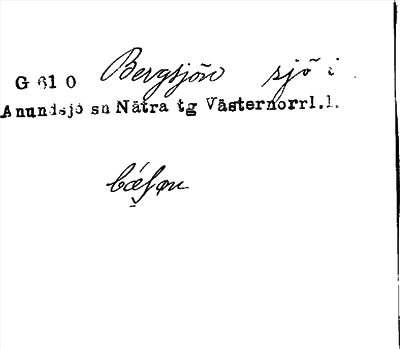 G 610 Bergsjön sjö i
Anundsjö sn Nätra tg Västernorrl.l.